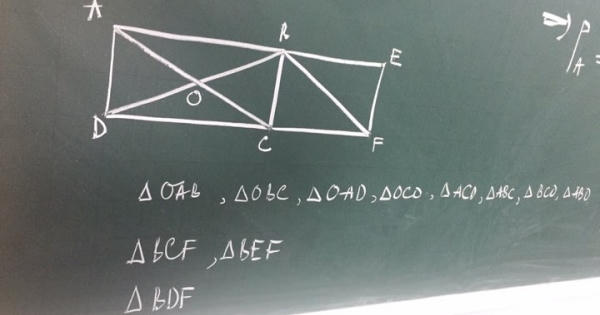 A
B
E
⇒) P
/A =
O
D
C
F
Δ OAB , Δ OBC , Δ OAD, Δ OCD , Δ ACD, Δ ABC, Δ BCD, Δ ABD
Δ BCF , Δ BEF
Δ BDF